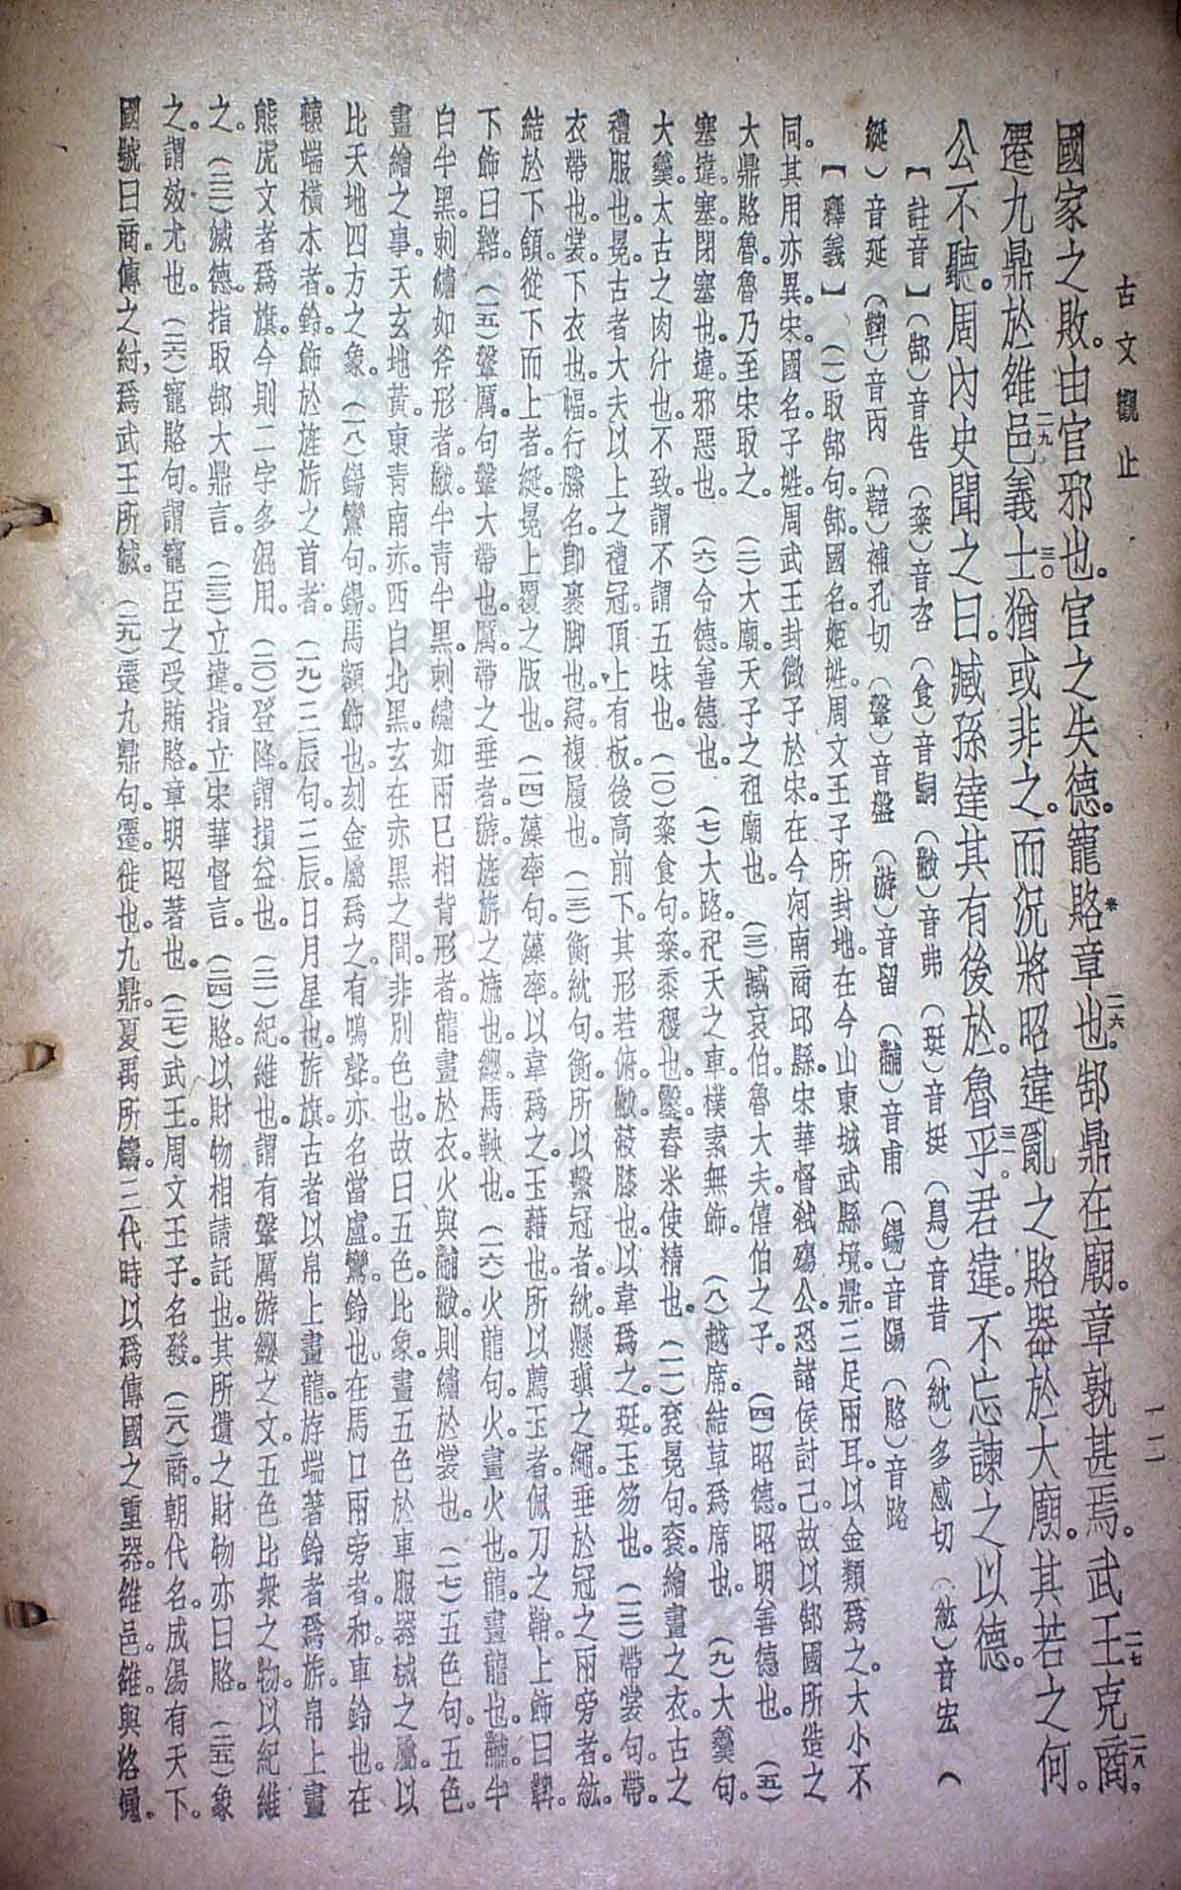 古文觀止
一二
國家之敗。由官邪也。官之失德。寵賂章也。郜鼎在廟。章孰甚焉。武王克商。
遷九鼎於雒邑。義士猶或非之。而況將昭違亂之賂器於大廟。其若之何。
公不聽。周內史聞之曰。臧孫達其有後於魯乎。君違。不忘諫之以德。
【註音】（郜）音告（粢）音咨（食）音嗣（黻）音弗（珽）音挺（舄）音昔（紞）多感切（紘）音宏（
綖）音延（鞞）音丙（鞛）補孔切（鞶）音盤（游）音留（黼）音甫（鍚）音陽（賂）音路
【釋義】（一）取郜句。郜。國名。姬姓。周文王子所封地。在今山東城武縣境。鼎。三足兩耳。以金類爲之。大小不
同。其用亦異。宋。國名。子姓。周武王封微子於宋。在今河南商邱縣。宋華督弒殤公。恐諸侯討己。故以郜國所造之
大鼎賂魯。魯乃至宋取之。（二）大廟。天子之祖廟也。（三）臧哀伯。魯大夫。僖伯之子。（四）昭德。昭明善德也。（五）
塞違。塞。閉塞也。違。邪惡也。（六）令德。善德也。（七）大路。祀天之車。樸素無飾。（八）越席。結草爲席也。（九）大羹句。
大羹。太古之肉汁也。不致。謂不調五味也。（一〇）粢食句。粢。黍稷也。鑿。舂米使精也。（一一）袞冕句。袞。繪畫之衣。古之
禮服也。冕。古者大夫以上之禮冠。頂上有板。後高前下。其形若俯。黻。蔽膝也。以韋爲之。珽。玉笏也。（一二）帶裳句。帶。
衣帶也。裳。下衣也。幅。行縢名。卽裹脚也。舄。複履也。（一三）衡紞句。衡。所以繫冠者。紞。懸瑱之繩。垂於冠之兩旁者。紘。
結於下頷。從下而上者。綖。冕上覆之版也。（一四）藻率句。藻率。以韋爲之。玉藉也。所以薦玉者。佩刀之鞘。上飾曰鞞。
下飾曰鞛。（一五）鞶厲句。鞶。大帶也。厲。帶之垂者。游。旌旂之旒也。纓。馬鞅也。（一六）火龍句。火。畫火也。龍。畫龍也。黼。半
白半黑。刺繡如斧形者。黻。半青半黑。刺繡如兩巳相背形者。龍畫於衣。火與黼黻。則繡於裳也。（一七）五色句。五色。
畫繪之事。天玄地黃。東青南赤。西白北黑。玄在赤黑之間。非別色也。故曰五色。比象。畫五色於車服器械之屬。以
比天地四方之象。（一八）鍚鸞句。鍚。馬額飾也。刻金屬爲之。有鳴聲。亦名當盧。鸞。鈴也。在馬口兩旁者。和。車鈴也。在
轅端橫木者。鈴。飾於旌旂之首者。（一九）三辰句。三辰。日月星也。旂旗。古者以帛上畫龍。斿端著鈴者爲旂。帛上畫
熊虎文者爲旗。今則二字多混用。（二〇）登降。謂損益也。（二一）紀。維也。謂有鞶厲游纓之文。五色比衆之物。以紀維
之。（二二）滅德。指取郜大鼎言。（二三）立違。指立宋華督言。（二四）賂。以財物相請託也。其所遺之財物亦曰賂。（二五）象
之。謂效尤也。（二六）寵賂句。謂寵臣之受賄賂。章明昭著也。（二七）武王。周文王子。名發。（二八）商。朝代名。成湯有天下。
國號曰商。傳之紂。爲武王所滅。（二九）遷九鼎句。遷。徙也。九鼎。夏禹所鑄。三代時以爲傳國之重器。雒邑。雒。與洛通。